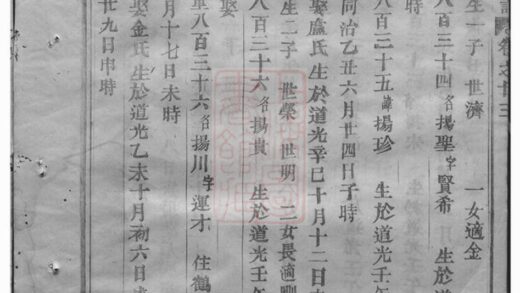 卷之廿三
生一子 世濟 一女適金
八百三十四 名揚聖 字賢希 生於道
時
八百三十五 諱揚珍 生於道光壬
同治乙丑六月廿四日子時
娶盧氏 生於道光辛巳十月十二日
生二子 世榮 世明 二女長適
八百三十六 名揚貴 生於道光壬午
娶
八百三十六 名揚川 字運才 住鶴
月十七日未時
娶金氏 生於道光乙未十月初六日
廿九日申時